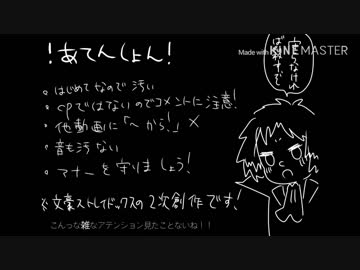 ！あてんしょん！
・はじめてなので汚い
・cpではないのでコメントに注意！
・他動画に「〜から！」✕
・音も汚ない
・マナーを守りましょう！
※文豪ストレイドッグスの2次創作です！
こんっな雑なアテンション見たことないね！！
Made with KINEMASTER
守らなければ
殺すぞ